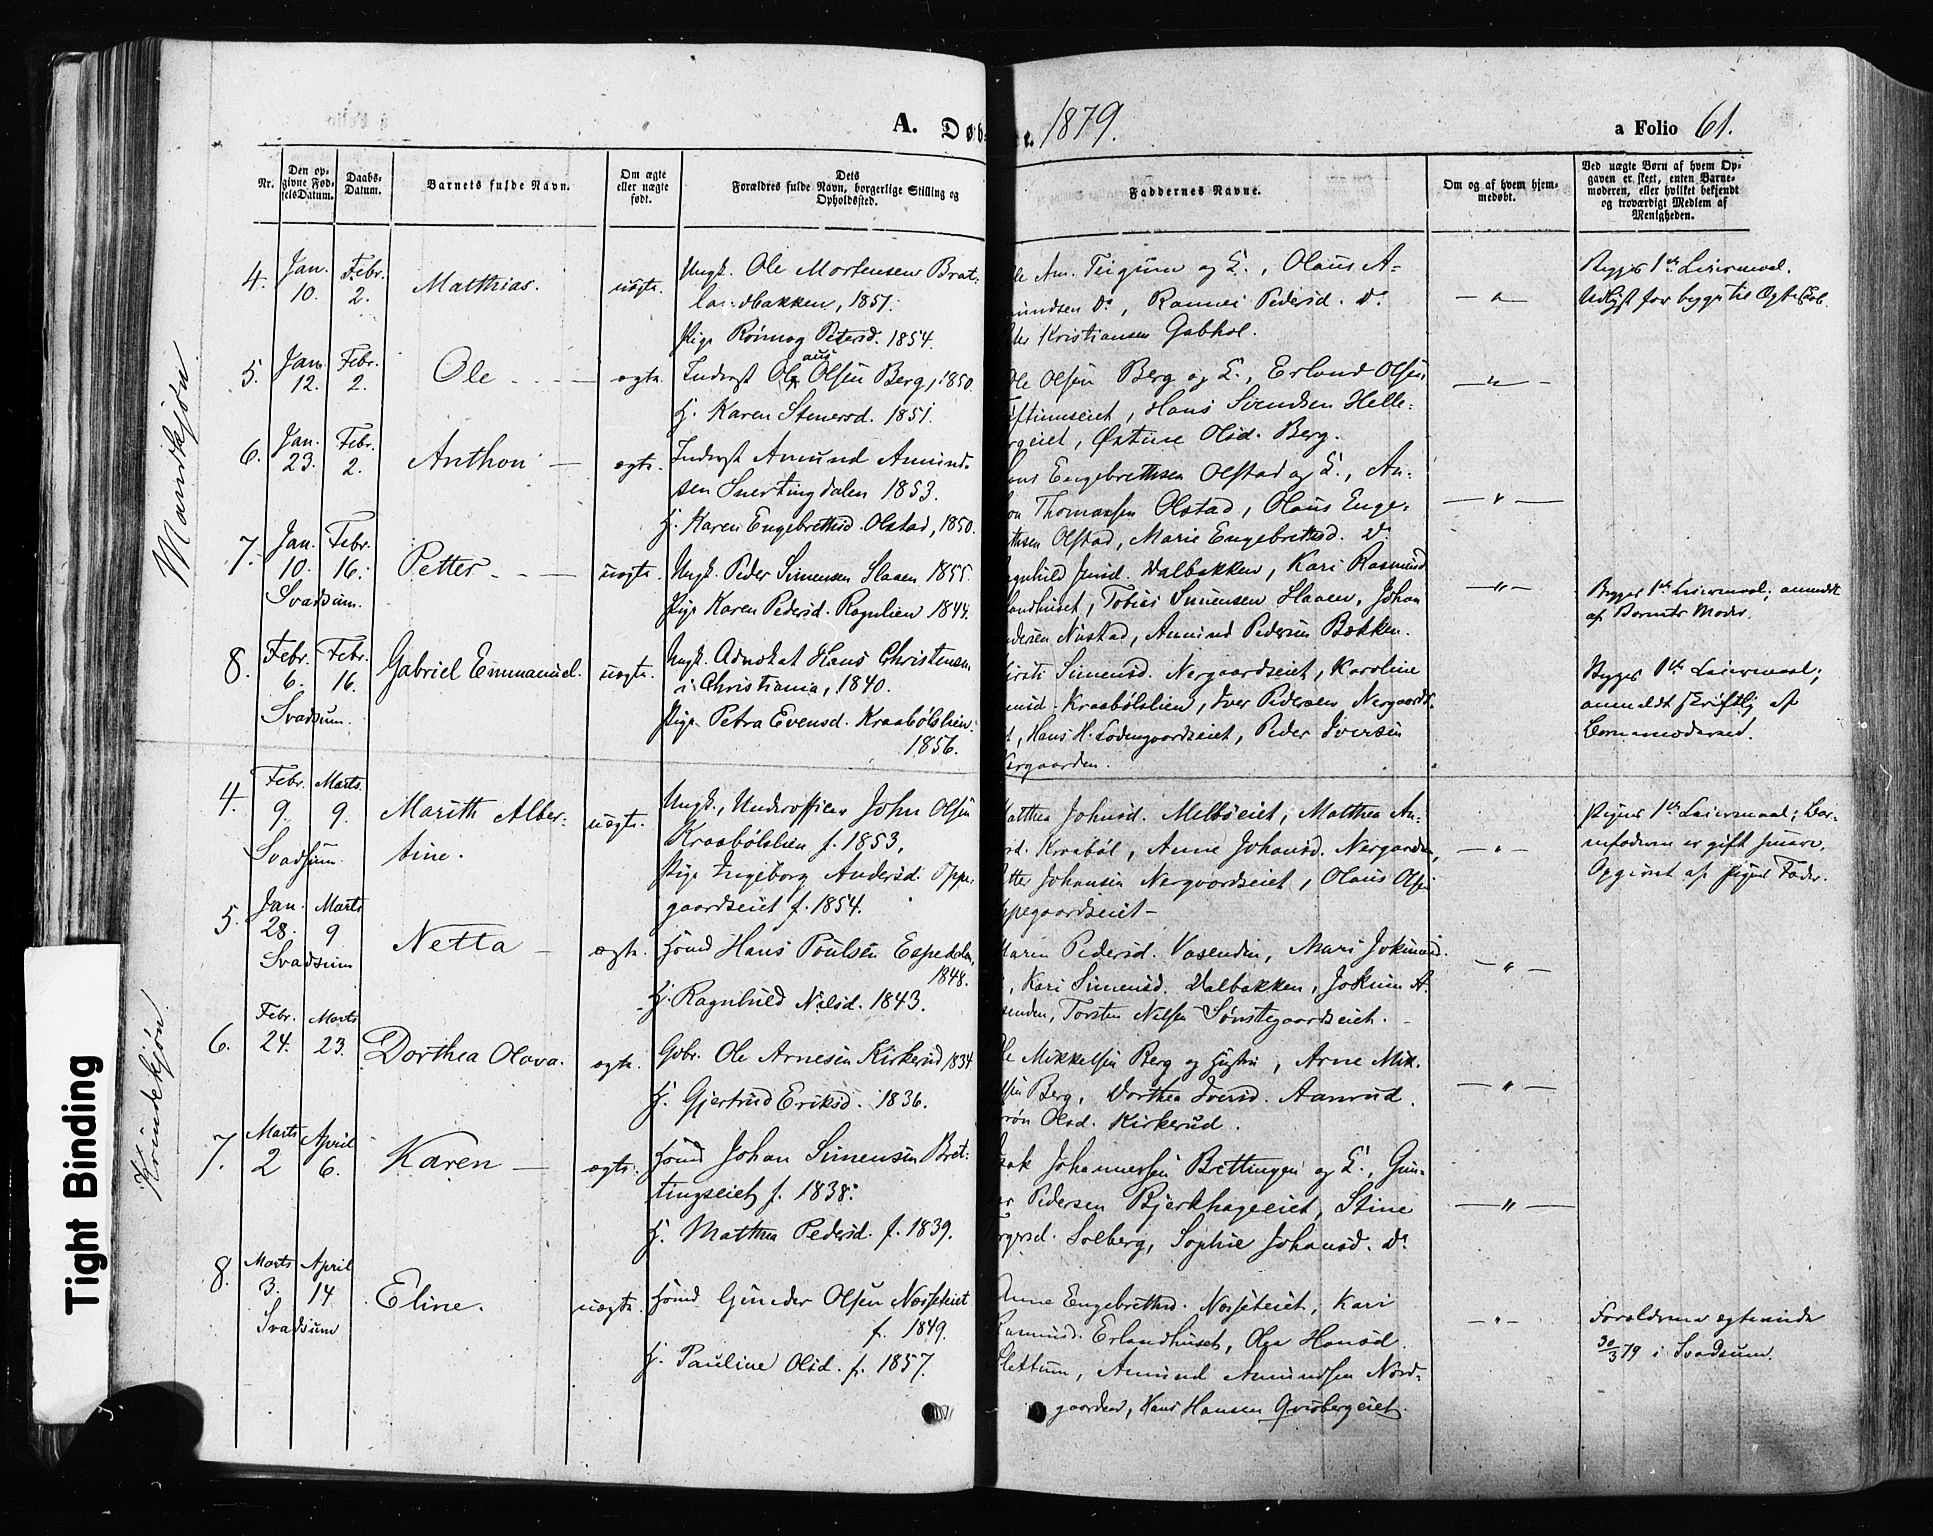 A. Døb-
e. 1879.
a Folio 61.
Nr.
Den op-
givne Fød-
selsDatum.
Daabs-
Datum.
Barnets fulde Navn.
Om ægte
eller uægte
født.
Dets
Forældres fulde Navn, borgerlige Stilling og
Opholdssted.
Faddernes Navne.
Om og af hvem hjem-
medøbt.
Ved uægte Børn af hvem Op-
gaven er skeet, enten Barne-
moderen, eller hvilket bekjendt
og troværdigt Medlem af
Menigheden.
Mandkjøn
4. Jan. 10. Febr. 2. Matthias. uægte.
Ungk. Ole Mortensen Brat-
landbakken, 1851.
Pige Rønnog Petersd. 1854.
Am. Teigum og H., Olaus A-
mundsen do, Rannei Pedersd. do
Kristiansen Gabhol.
— " —
Begges 1ste Leiermaal.
5. Jan. 12. Febr. 2. Ole ægte.
Inderst Olaus Olsen Berg, 1850.
H. Karen Stenersd. 1851.
Ole Olsen Berg og H., Erland Olsen
Hans Svendsen Helle-
bergeiet, Østine Olsd. Berg.
— " —
6. Jan. 23. Febr. 2. Anthon — ægte.
Inderst Amund Amund-
sen Snertingdalen 1853.
H. Karen Engebrethsd. Olstad, 1850.
Engebrethsen Olstad og H., An-
ton Thomassen Olstad, Olaus Enge-
brethsen Olstad, Marie Engebrethsd. do
— " —
7. Jan. 10. Febr. 16. Petter uægte.
Svadsum.
Ungk. Peder Simensen Slaaen 1855.
Pige Karen Pedersd. Rognlien 1844.
Ragnhild Dalbakken, Kari Rasmusd
Erlandhuset, Tobias Simensen Slaaen, Johan
Pedersen Nustad, Amund Pedersen Bækken.
— " —
Begges 1ste Leiermaal; anmeldt
af Barnets Moder.
8. Febr. 6. Febr. 16. Gabriel Emmanuel. uægte.
Svadsum.
Ungk. Advokat Hans Christensen
i Christiania, 1840.
Pige Petra Evensd. Kraabølslien
1856.
Kirsti Simensd. Nergaardseiet, Karoline
Kraabølslien, Iver Pedersen Nergaards-
eiet, Hans H. Lodengaardseiet, Peder Iversen
Nergaarden.
Begges 1ste Leiermaal;
anmeldt skriftlig af
Barnemoderen.
Kvindekjøn.
4. Febr. 9. Marts 9. Marith Alber-
tine. uægte.
Svadsum
Ungk., Underofficer John Olsen
Kraabølslien f. 1853,
Pige Ingeborg Andersd. Oppe-
gaardseiet f. 1854.
Matthea Johnsd. Melbøeiet, Matthea An-
dersd. Kraabøl, Anne Johansd. Nergarden,
Johansen Nergaardseiet, Olaus Olsen
Oppegaardseiet —
— " —
Pigens 1ste Leiermaal; Bar-
nefaderen er gift
Opgivet af Pigens Fader.
5. Jan. 28. Marts 9 Netta — ægte.
Svadsum
Hsmd Hans Poulsen Espedalen,
1848.
H. Ragnhild Nilsd. 1843.
Maren Pedersd. Vasenden, Mari Jokumsd.
, Kari Simensd. Dalbakken, Jokum A.
Vasenden, Torsten Nilsen Sønstegaardseiet.
— " —
6. Febr. 24. Marts 23. Dorthea Olava. ægte.
Gbr. Ole Arnesen Kirkerud 1834.
H. Gjertrud Eriksd. 1836.
Ole Mikkelsen Berg og Hustru, Arne Mik-
kelsen Berg, Dorthea Iversd. Aanrud.
Olsd. Kirkerud.
— " —
7. Marts 2 April 6. Karen — ægte.
Hsmd Johan Simensen Bret-
tingseiet f. 1838.
H. Matthea Pedersd. f. 1839.
Isak Johannessen Brettingen og H., Gun-
der Pedersen Bjerkhageeiet, Stine
Torgersd. Solberg, Sophie Johansd. do
— " —
8. Marts 3. April 14 Eline. uægte.
Svadsum
Hsmd Gunder Olsen Nosseteiet
f. 1849.
H. Pauline Olsd. f. 1857.
Anne Engebrethsd. Nosseteiet, Kari
Rasmusd. Erlandhuset, Olea Hansd.
Slettum, Amund Amundsen Nord-
gaarden, Hans Hansen Qvisbergeiet.
— " —
Forældrene egteviede
30/3 79 i Svadsum.
Tight Binding